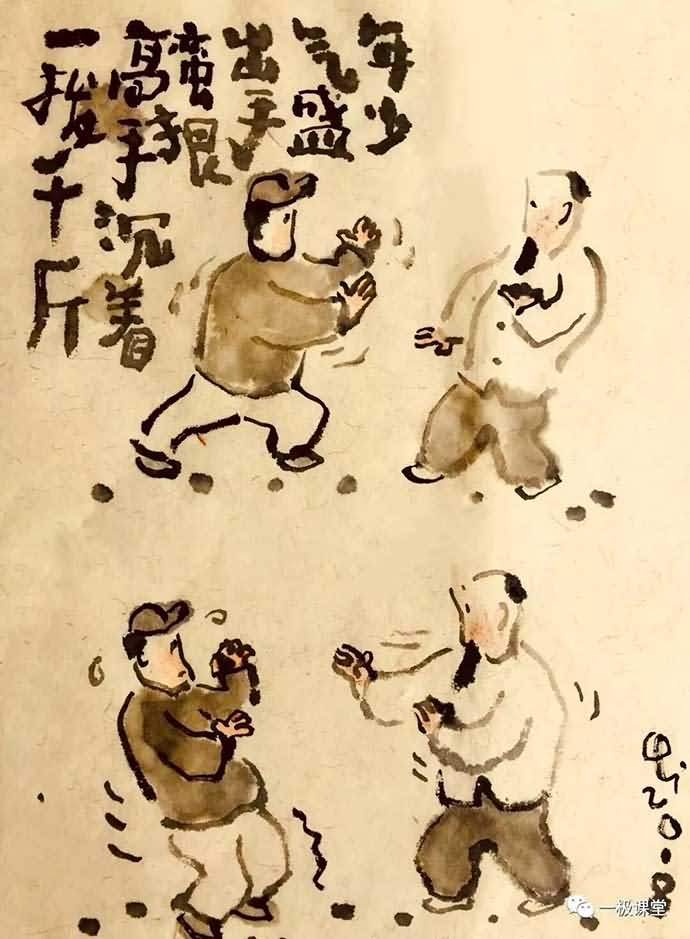 年少
气盛
出手
蛮狠
高手沉着
一拨千斤
20.8
一极课堂